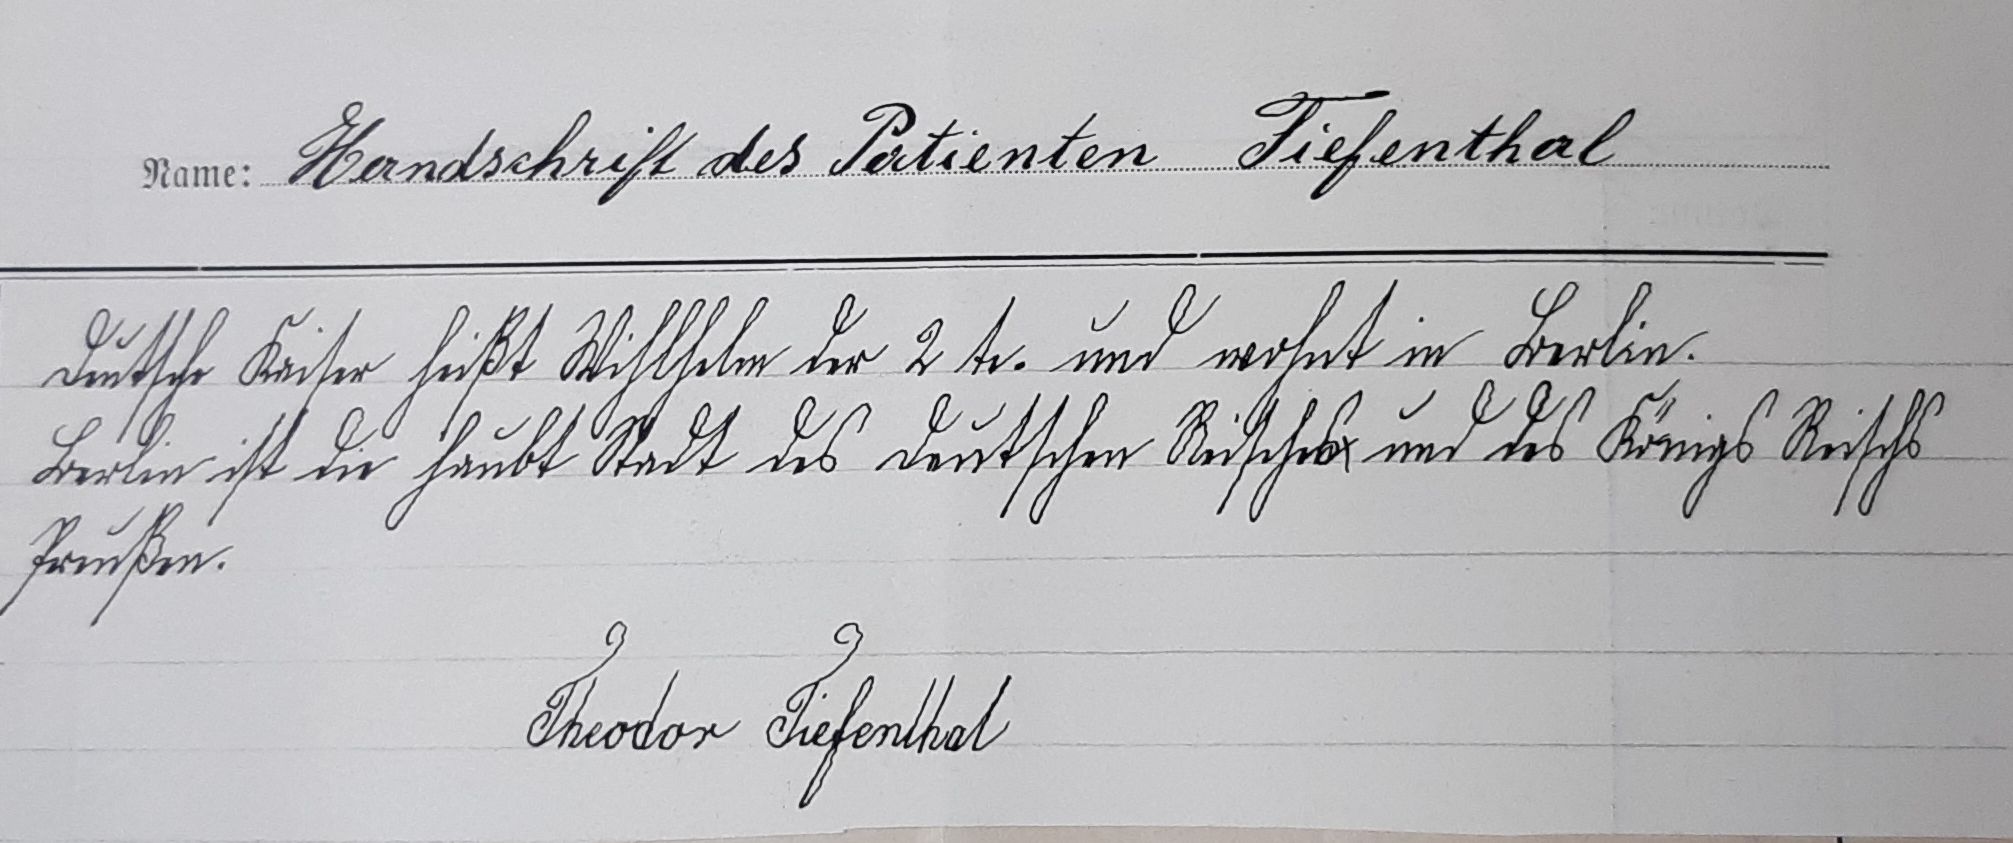 Name: Handschrift des Patienten Tiefenthal
Deutsche Kaiser heißt Wihlhelm der 2 te. und wohnt in Berlin.
Berlin ist die haubt Stadt des deutschen Reisches und des Königs Reischs
Preußen.
Theodor Tiefenthal